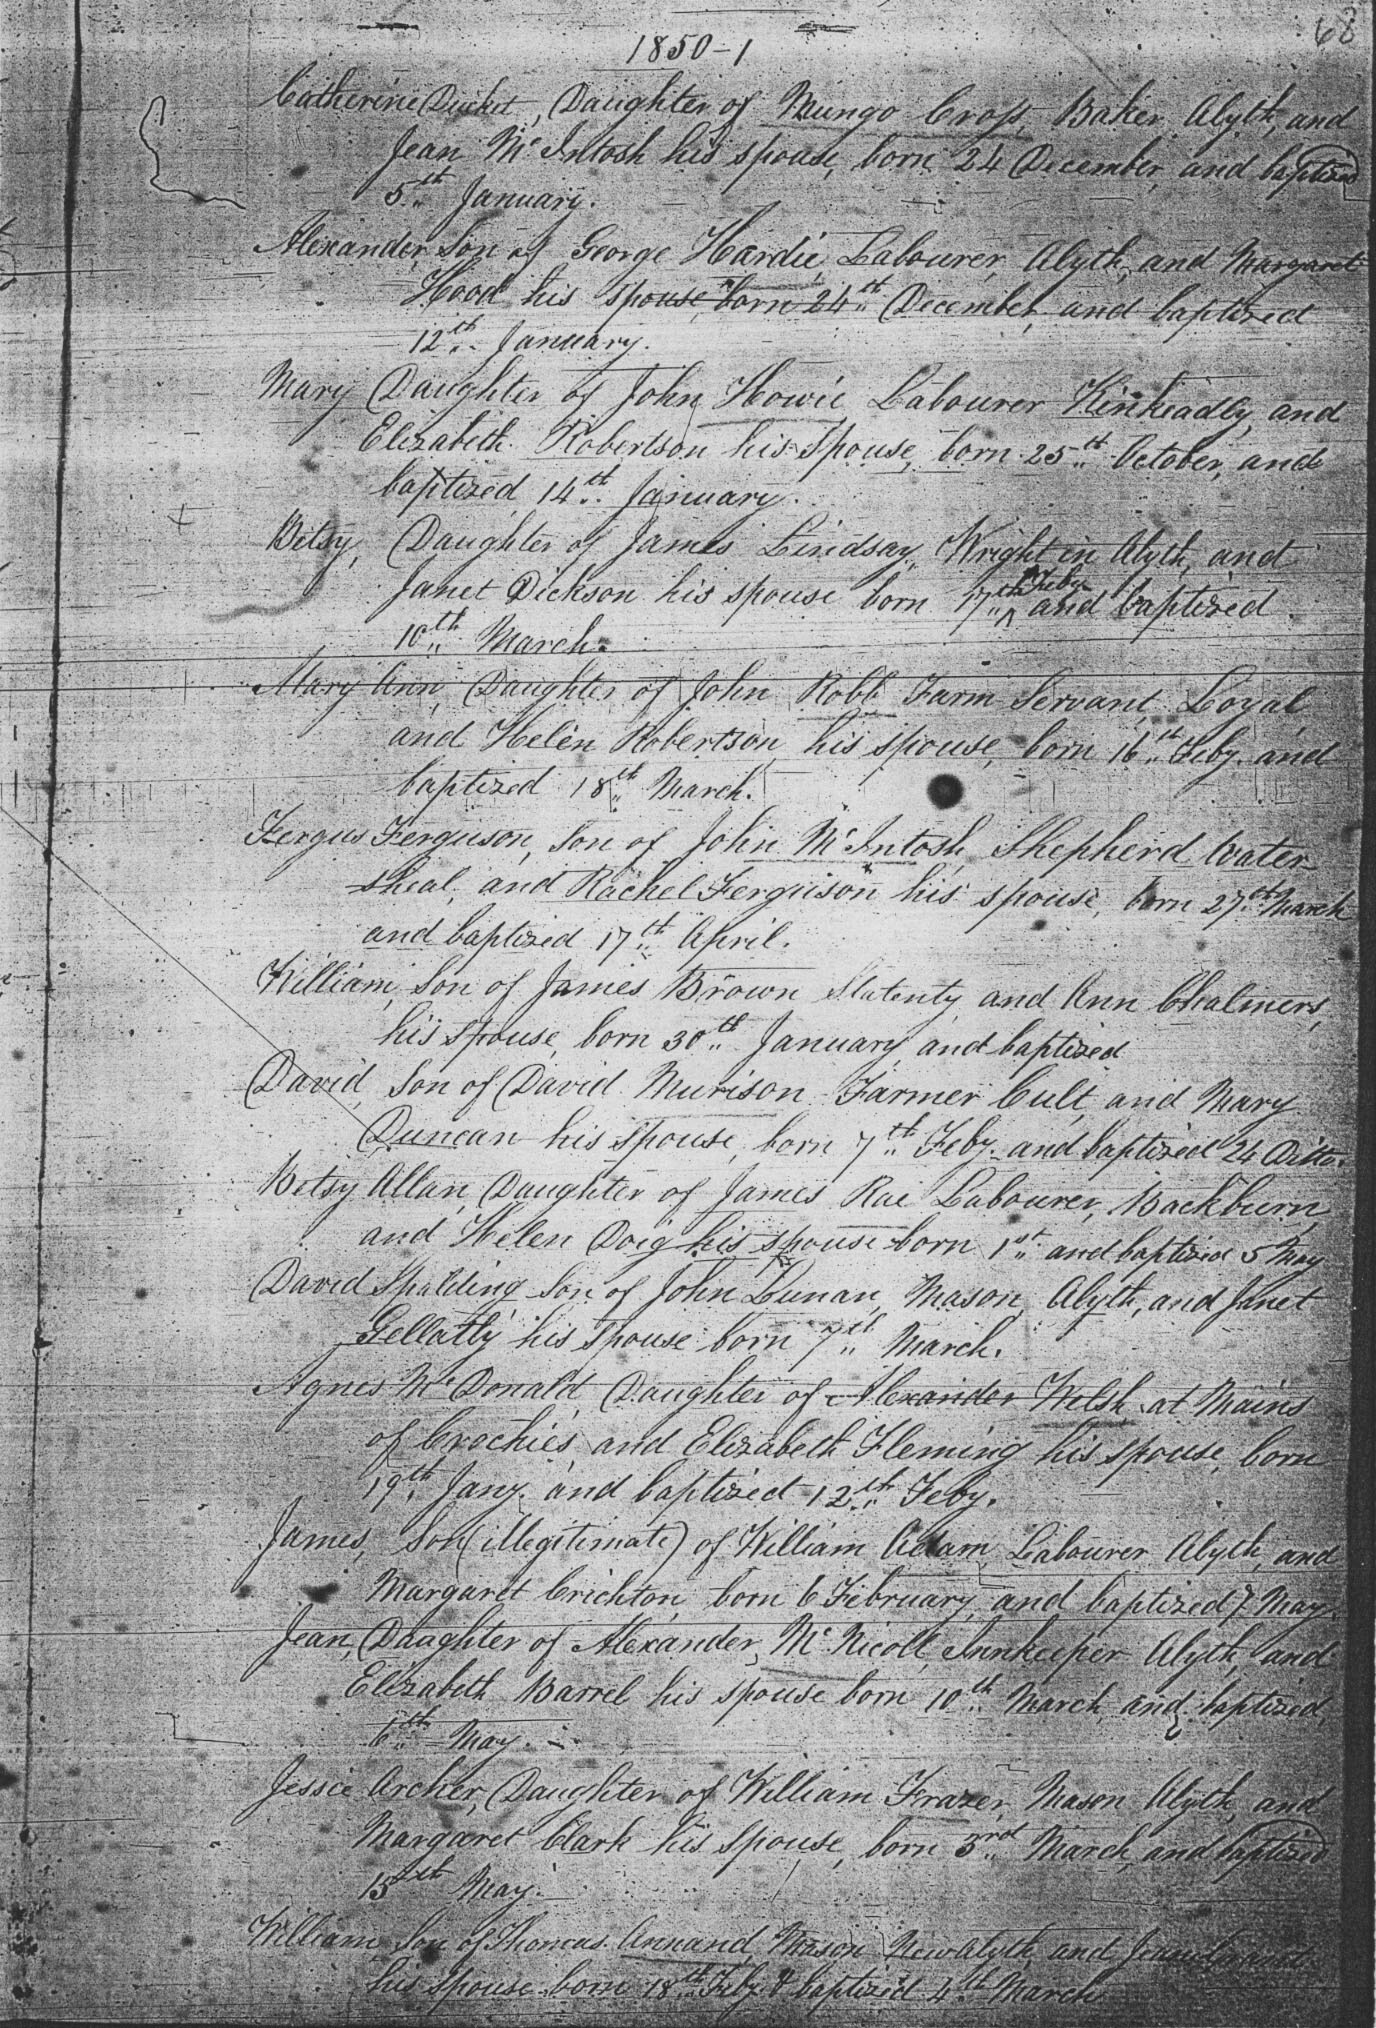 68
1850-1
Catherine Ducket, Daughter of Mungo Crofs, Baker, Alyth, and
Jean Mc Intosh his spouse, born 24 December, and baptized
5th January.
Alexander, Son of George Hardie, Labourer, Alyth, and Margaret
Hood his spouse, born 24th December, and baptized
12th January.
Mary Daughter of John Howie Labourer Kinkeadly, and
Elizabeth Robertson his Spouse, born 25th October, and
baptized 14th January.
Betsy, Daughter of James Lindsay, Wright in Alyth, and
Janet Dickson his spouse born 17th Feby. and baptized
10th March.
Mary Ann, Daughter of John Robb Farm Servant, Loyal
and Helen Robertson, his spouse, born 16th Feby. and
baptized 18th March.
Fergus Ferguson, Son of John Mc Intosh, Shepherd Water-
sheal, and Rachel Ferguison his spouse, born 27th March
and baptized 17th April.
William, Son of James Brown Slatenty, and Ann Chalmers,
his spouse, born 30th January, and baptized
David, Son of David Murison Farmer Cult, and Mary
Duncan his Spouse, born 7th Feby. and baptized 24 Ditto.
Betsy Allan, Daughter of James Rae Labourer, Backburn,
and Helen Doig his spouse born 1st and baptized 5 May
David Spalding Son of John Lunan, Mason, Alyth, and Janet
Gellatly his spouse born 7th March.
Agnes Mc Donald, Daughter of Alexander Welsh at Mains
of Crochies and Elizabeth Fleming his spouse, born
19th Jany. and baptized 12th Feby.
James, Son (illegitimate) of William Adam, Labourer Alyth, and
Margaret Crichton, born 6 February, and baptized 7 May.
Jean, Daughter of Alexander, Mc Nicoll, Innkeeper Alyth, and
Elizabeth Barrel his spouse born 10th March, and baptized,
6th May.
Jessie Archer, Daughter of William Frazer, Mason Alyth, and
Margaret Clark his Spouse, born 3rd March, and baptized
15th May.
William Son of Thomas Annand, Mason New Alyth, and Jean
his spouse born 18th Feby & baptized 4th March